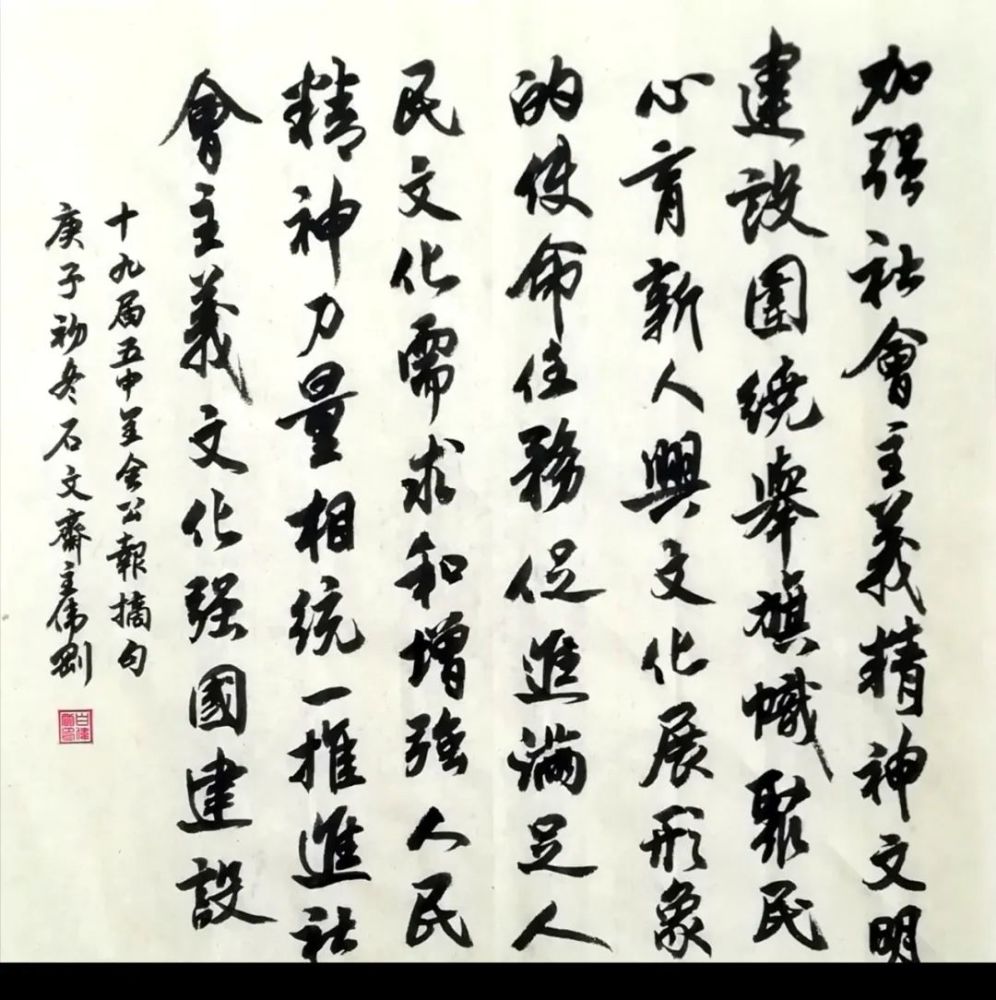 加强社會主義精神文明
建設圍繞舉旗幟聚民
心育新人興文化展形象
的使命任務促進滿足人
民文化需求和增強人民
精神力量相統一推進社
會主義文化强國建設
十九届五中全會公報摘句
庚子初冬石文齋主偉剛